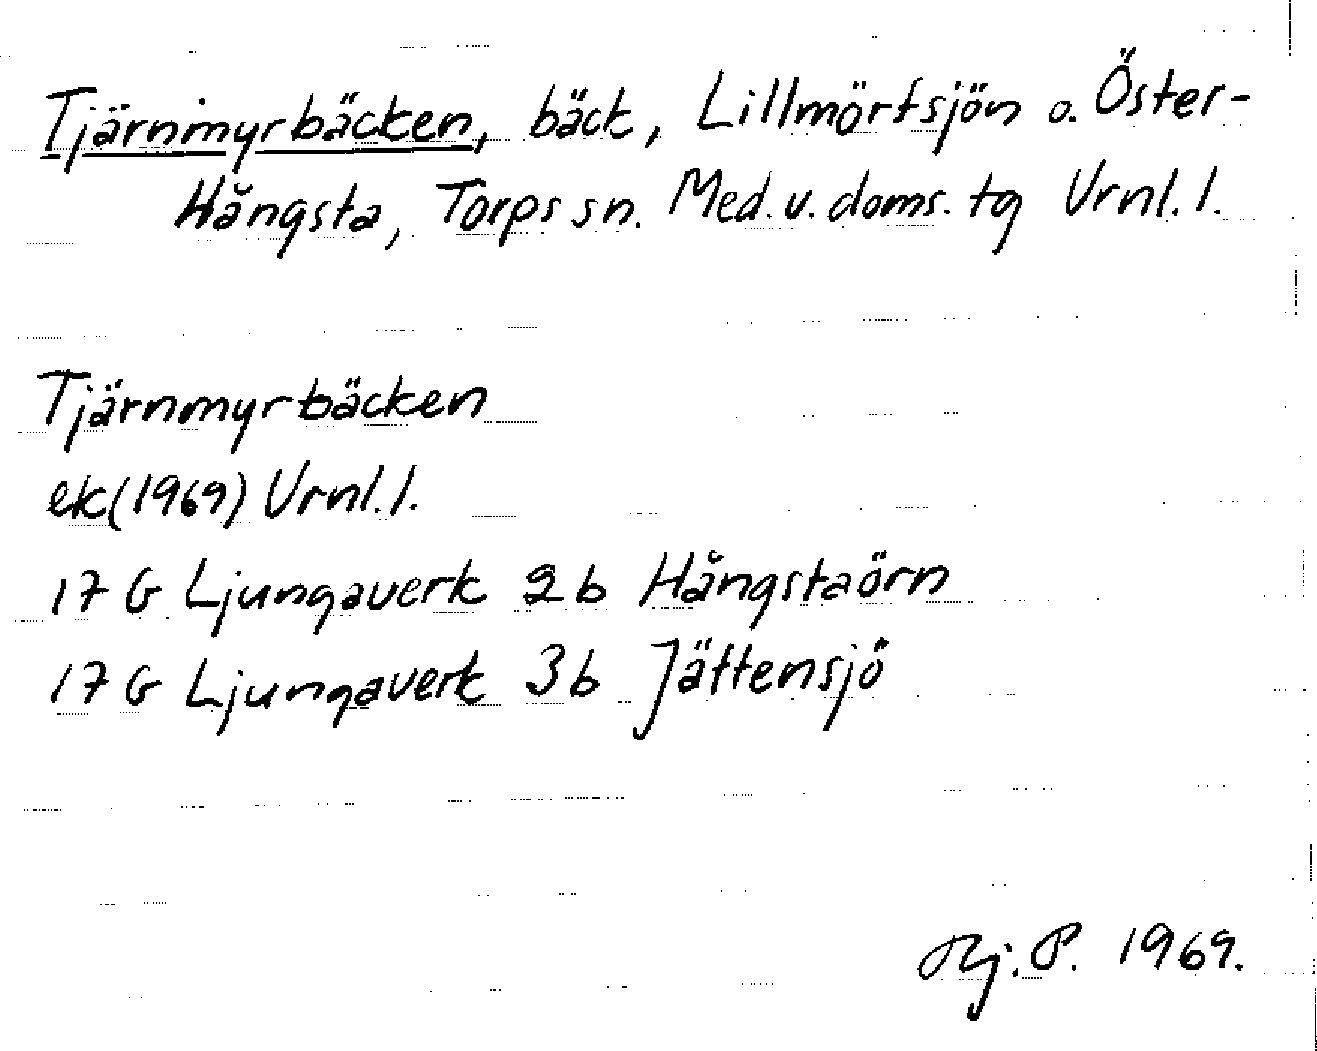 Tjärnmyrbäcken, bäck, Lillmörtsjön o. Öster-
Hångsta, Torps sn. Med. v. doms. tg Vrnl. l.
Tjärnmyrbäcken
ek (1969) Vrnl. l.
17 G Ljungaverk 2 b Hångstaörn
17 G Ljungaverk 3 b Jättensjö
P. 1969.